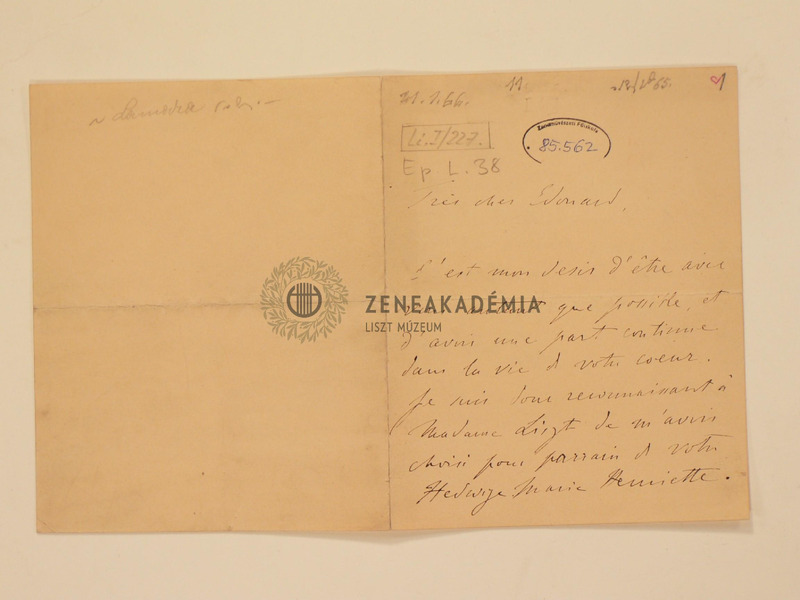 21.1.66.
11.
1
Li.I/227.
Zeneművészeti Főiskola
85.562
Ep L. 38
Très cher Edouard,
C'est mon desir d'être avec
vous autant que possible, et
d'avoir une part continue
dans la vie de votre coeur.
Je suis donc reconnaissant à
Madame Liszt de m'avoir
choisi pour parrain de votre
Hedwige Marie Henriette.
ZENEAKADÉMIA
LISZT MÚZEUM